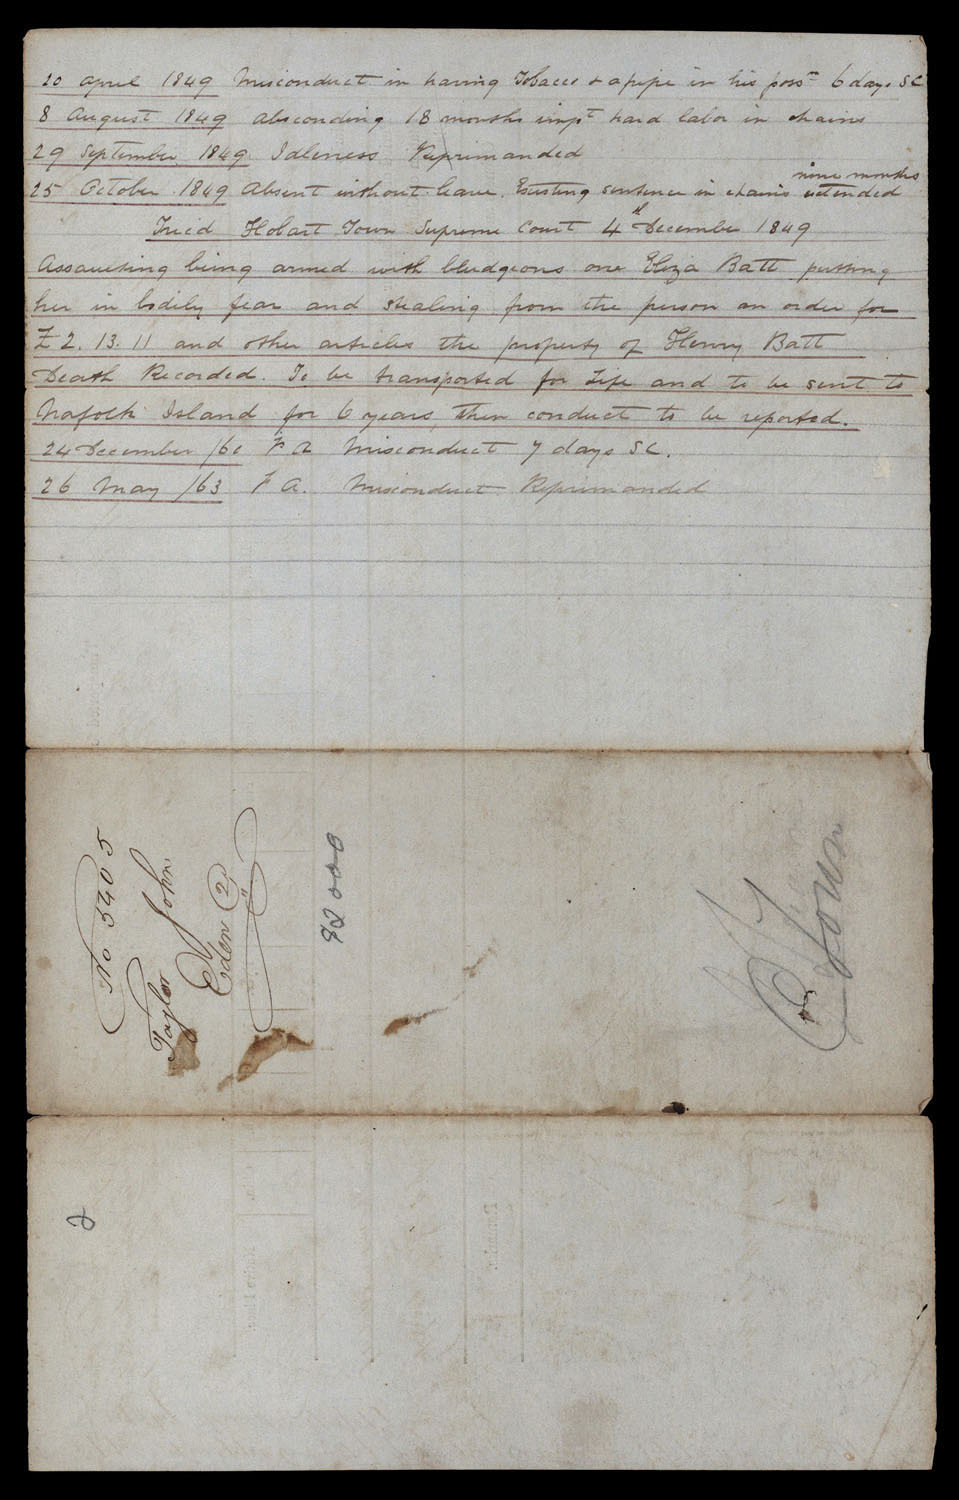 20 April 1849 Misconduct in having Tobacco & a pipe in his possn 6 days SC
8 August 1849 Absconding 18 months impt hard labor in chains
29 September 1849 Idleness Reprimanded
nine months
25 October 1849 Absent without leave. Existing sentence in chains extended
Tried Hobart Town Supreme Court 4th December 1849
Assaulting being armed with bludgeons one Eliza Batt putting
her in bodily fear and stealing from the person an order for
£2.13.11 and other articles the property of Henry Batt
Death Recorded. To be transported for Life and to be sent to
Norfolk Island for 6 years then conduct to be reported.
24 December /60 P A Misconduct 7 days SC.
26 May /63 P A. Misconduct Reprimanded
No 5405
Taylor John
Eden (2)
Town
2